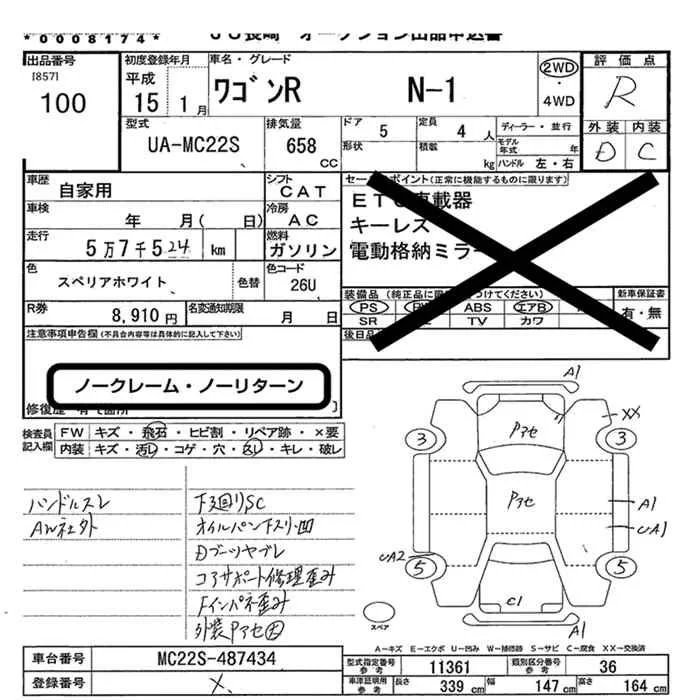 *0008174*
JU長崎 オークション出品申込書
出品番号
[857]
100
初度登録年月
平成
15 1月
車名・グレード
ワゴンR N-1
2WD
・
4WD
評価点
R
外装 内装
D C
型式
UA-MC22S
排気量
658
CC
ドア
5
定員
4 人
ディーラー・並行
形状
積載
kg
モデル年式 年
ハンドル 左・右
車歴
自家用
シフト
CAT
車検
年 月( 日)
冷房
AC
走行
5万7千524 km
燃料
ガソリン
色
スペリアホワイト
色替
色コード
26U
R券
8,910円
名変通知期限
月 日
セールスポイント(正常に機能するものに限ります)
ETC車載器
キーレス
電動格納ミラー
装備品(純正品に限りをつけてください)
PS ABS エアB
SR TV カワ
新車保証書
有・無
後日品
注意事項申告欄(不具合内容等は具体的に記入して下さい)
ノークレーム・ノーリターン
修復歴 有 て箇所 ]
検査員
記入欄
FW キズ・飛石・ヒビ割・リペア跡・×要
内装 キズ・汚レ・コゲ・穴・スレ・キレ・破レ
ハンドルスレ
AW社外
下廻りSC
オイルパン下スリ凹
Dブーツヤブレ
コアサポート修理歪み
Fインパネ歪み
外装Pアセ大
A1
XX
Pアセ
3
3
Pアセ
A1
UA1
UA2
5
5
C1
A1
スペア
A-キズ E-エクボ U-凹み W-補修跡 S-サビ C-腐食 XX-交換済
車台番号
MC22S-487434
登録番号
×
型式指定番号
参考
11361
類別区分番号
参考
36
車湾証明用
参考
長さ 339 cm
幅 147 cm
高さ 164 cm